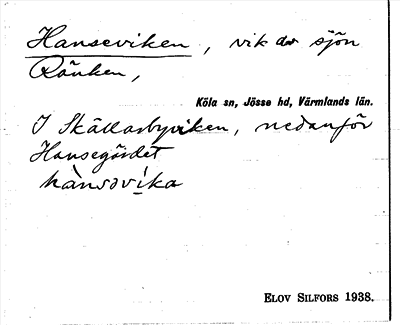 Hanseviken, vik av sjön
Ränken,
Köla sn, Jösse hd, Värmlands län.
I Skällarbyviken, nedanför
Hansegärdet
hànsəvi̱ka
ELOV SILFORS 1938.